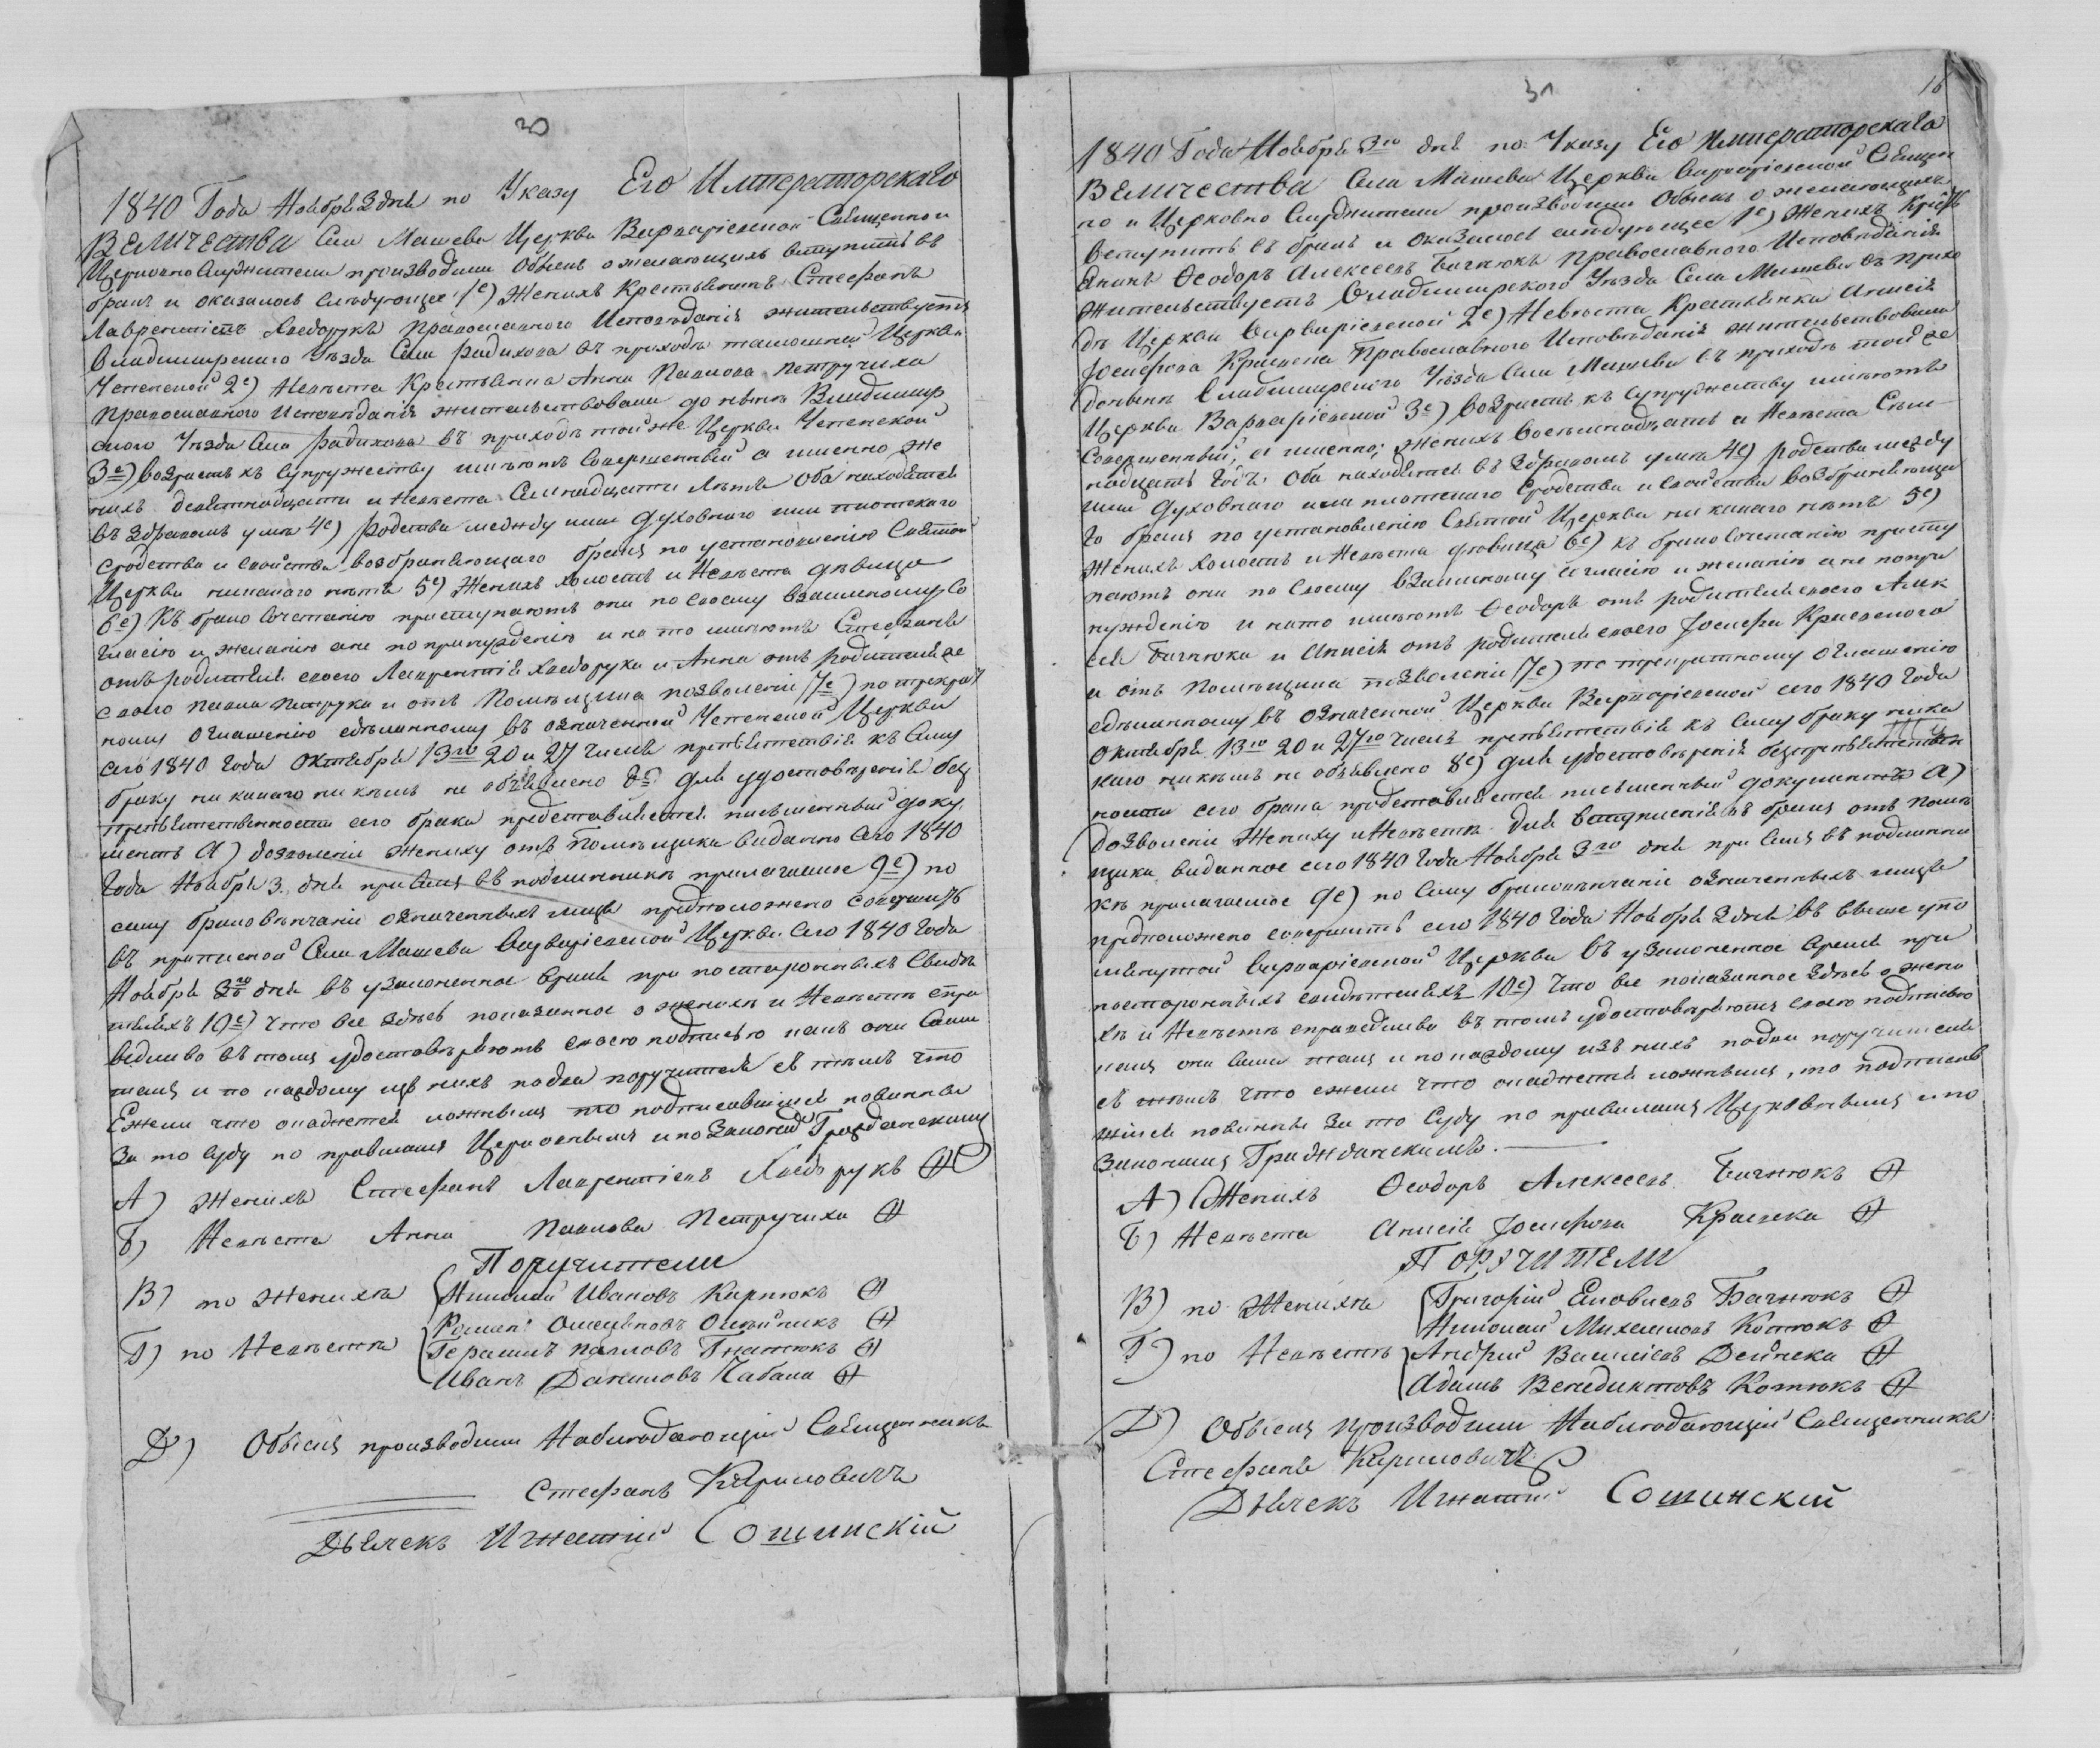 30
1840 Года Ноября 3 дня по Указу Его Императорскаго
Величества Села Машева Церкви Варваріевской Священно и
Церковно Служители производили Обыскъ о желающихъ вступить въ
бракъ и оказалось слѣдующее: 1е) Женихъ Крестьянинъ Стефанъ
Лаврентіевъ Хведорукъ Православного Исповѣданія жительствуетъ
Владимирского Уѣзда Села Радихова въ приходѣ тамошней Церкви
Успенской 2е) Невѣста Крестьянка Анна Павлова Петручиха
Православного Исповѣданія жительствовала до нынѣ Владимир
ского Уѣзда Села Радихова въ приходѣ той же Церкви Успенской
3е) Возрастъ къ Супружеству имѣютъ Совершенный а именно Же
нихъ девятнадцати и Невѣста Семнадцати Лѣтъ Оба находятся
въ Здравомъ умѣ 4е) Родства между ними духовного или плотского
сродства и свойства возбраняющаго бракъ по установленію Святой
Церкви никакого нѣтъ 5е) Женихъ холостъ и Невѣста дѣвица
6е) Къ брако Сочетанію приступаютъ они по своему взаимному Со
гласію и желанію а не по принужденію и на то имѣютъ Стефанъ
отъ родителя своего Лаврентія Хведорука и Анна отъ родителя
своего Павла Петрука и отъ Помѣщика позволеніе 7е) по трекрат
ному Оглашенію сдѣланному въ означенной Успенской Церкви
сего 1840 Года Октября 13го 20 и 27 Числъ препятствія къ Сему
браку никакого никѣмъ не объявлено 8е) для удостовѣренія без
препятственности сего брака представляется письменный доку
ментъ А) дозволеніе Жениху отъ Помѣщика виданно Сего 1840
Года Ноября 3. дня при Семъ въ подлинникѣ прилагаемое 9е) по
сему браковѣнчаніе означенныхъ лицъ предположено совершить
въ приписной Села Машева Варваріевской Церкви Сего 1840 Года
Ноября 3го дня въ узаконенное время при постороннихъ Свидѣ
теляхъ 10е) Что все здѣсь показанное о женихѣ и Невѣстѣ спра
ведливо въ томъ удостовѣряютъ своею подписью какъ они Сами
такъ и по каждому изъ нихъ по два поручителя съ тѣмъ что
Ежели что окажется ложнымъ то подписавшіеся повинны
За то Суду по правиламъ Церковнымъ и по Законамъ Гражданскимъ
А) Женихъ Стефанъ Лаврентіевъ Хведорукъ
Б) Невѣста Анна Павлова Петручиха
Поручители
В) по Женихѣ Николай Ивановъ Карпюкъ
Романъ Олейникъ
Г) по Невѣстѣ Герасимъ Павловъ Гнатюкъ
Иванъ Даниловъ Чабанъ
Д) Обыскъ производили Наблюдающій Священникъ
Стефанъ Кириловичъ
Дьячекъ Игнатій Сошинскій
31
16
1840 Года Ноября 3го дня по Указу Его Императорскаго
Величества Села Машева Церкви Варваріевской Священ
но и Церковно Служители производили Обыскъ о желающихъ
Вступить въ бракъ и оказалось слѣдующее 1е) Женихъ Кресть
янинъ Ѳеодоръ Алексеевъ Бачнюкъ православного Исповѣданія
жительствуетъ Владимирского Уѣзда Села Машева въ прихо
дѣ Церкви Варваріевской 2е) Невѣста Крестьянка Анисія
Іосифова Православного Исповѣданія жительствовала
до нынѣ Владимирского Уѣзда Села Машева въ приходѣ той же
Церкви Варваріевской 3е) Возрастъ къ Супружеству имѣютъ
Совершенный, а именно: Женихъ Восемнадцать а Невѣста Сем
надцать Оба находятся въ Здравомъ умѣ 4е) родства между
ними духовного или плотского Сродства и Свойства возбраняюща
го бракъ по установленію Святой Церкви никакого нѣтъ 5е)
Женихъ холостъ и Невѣста дѣвица 6е) къ брако Сочетанію присту
паютъ они по Своему взаимному Согласію и желанію а не по при
нужденію и на то имѣютъ Ѳеодоръ отъ родителя своего Алек
сея Бачнюка и Анисія отъ родителя своего Іосифа
и отъ Помѣщика позволеніе 7е) по трекратному оглашенію
сдѣланному въ означенной Церкви Варваріевской сего 1840 Года
Октября 13го 20 и 27го Числъ препятствія къ Сему браку ника
кого никѣмъ не объявлено 8е) для удостовѣренія безпрепятствен
ности сего брака представляется письменный документъ А)
Дозволеніе Жениху и Невѣстѣ для вступленія въ бракъ отъ Помѣ
щика виданное сего 1840 Года Ноября 3го дня при Семъ въ подлинни
кѣ прилагаемое 9е) по Сему браковѣнчаніе означенныхъ лицъ
предположено совершить сего 1840 Года Ноября 3 дня въ выше упо
мянутой Варваріевской Церкви въ узаконенное время при
постороннихъ свидѣтеляхъ 10е) Что все показанное здѣсь о жени
хѣ и Невѣстѣ справедливо въ томъ удостовѣряютъ своею подписью
какъ они Сами такъ и по каждому изъ нихъ по два поручителя
съ тѣмъ что ежели что окажется ложнымъ, то подписав
шіеся повинны За то Суду по правиламъ Церковнымъ и по
Законамъ Гражданскимъ.
А) Женихъ Ѳеодоръ Алексеевъ Бачнюкъ
Б) Невѣста Анисія Іосифова
ПОРУЧИТЕЛИ
В) по Женихѣ Григорій Бачнюкъ
Николай Михаиловъ Котюкъ
Г) по Невѣстѣ Андрей Василіевъ Дейнека
Адамъ Венедиктовъ Котюкъ
Д) Обыскъ производили Наблюдающій Священникъ
Стефанъ Кириловичъ
Дьячекъ Игнатій Сошинскій